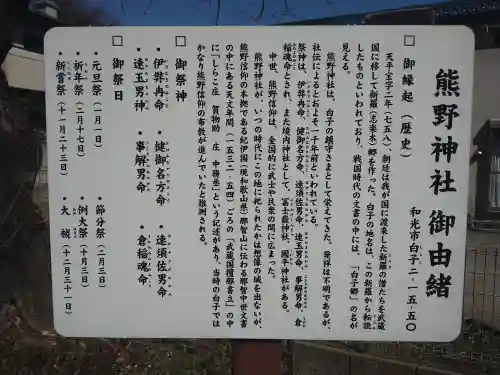 熊野神社 御由緒
和光市白子二‐一五‐五〇
□ 御縁起(歴史)
天平宝字二年(七五八)、朝廷は我が国に渡来した新羅の僧たちを武蔵
国に移して新羅(志楽木)郷を作った。白子の地名は、この新羅から転訛
したものといわれており、戦国時代の文書の中には、「白子郷」の名が
見える。
熊野神社は、白子の鎮守さまとして栄えてきた。発祥は不明であるが、
社伝によるとおよそ一千年前といわれている。
祭神は、伊弉冉命、健御名方命、速須佐男命、速玉男命、事解男命、倉
稲魂命とされ、また境内神社として、冨士嶽神社、國平神社がある。
中世、熊野信仰は、全国的に武士や民衆の間に広まった。
熊野神社が、いつの時代にこの地に祀られたかは想像の域を出ないが、
熊野信仰の本拠である紀伊国(現和歌山県)那智山に伝わる那智中世文書
の中にある天文年間(一五三二‐五四)ごろの「武蔵国檀那書立」の中
に「しらこ庄 賀物助 庄 中務丞」という記述があり、当時の白子では
かなり熊野信仰の布教が進んでいたと推測される。
□ 御祭神
・伊弉冉命 ・健御名方命 ・速須佐男命
・速玉男神 ・事解男命 ・倉稲魂命
□ 御祭日
・元旦祭(一月一日) ・節分祭(二月三日)
・祈年祭(二月十七日) ・例大祭(十月三日)
・新嘗祭(十一月二十三日) ・大祓(十二月三十一日)